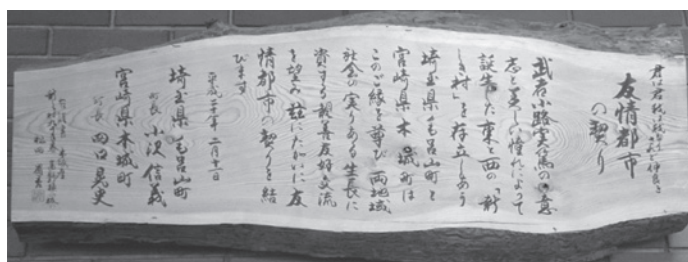 君は君我は我なりされど仲良き
友情都市
の契り
武者小路実篤の意
志と美しい憧れによって
誕生した東と西の「新
しき村」を存立しあう
埼玉県毛呂山町と
宮崎県木城町は
このご縁を尊び両地域
社会の実りある生長に
資する親善友好交流
を望み茲にたがいに友
情都市の契りを結
びます
平成
埼玉県毛呂山町
町長 小沢信義
宮崎県木城町
町長 田口晶史